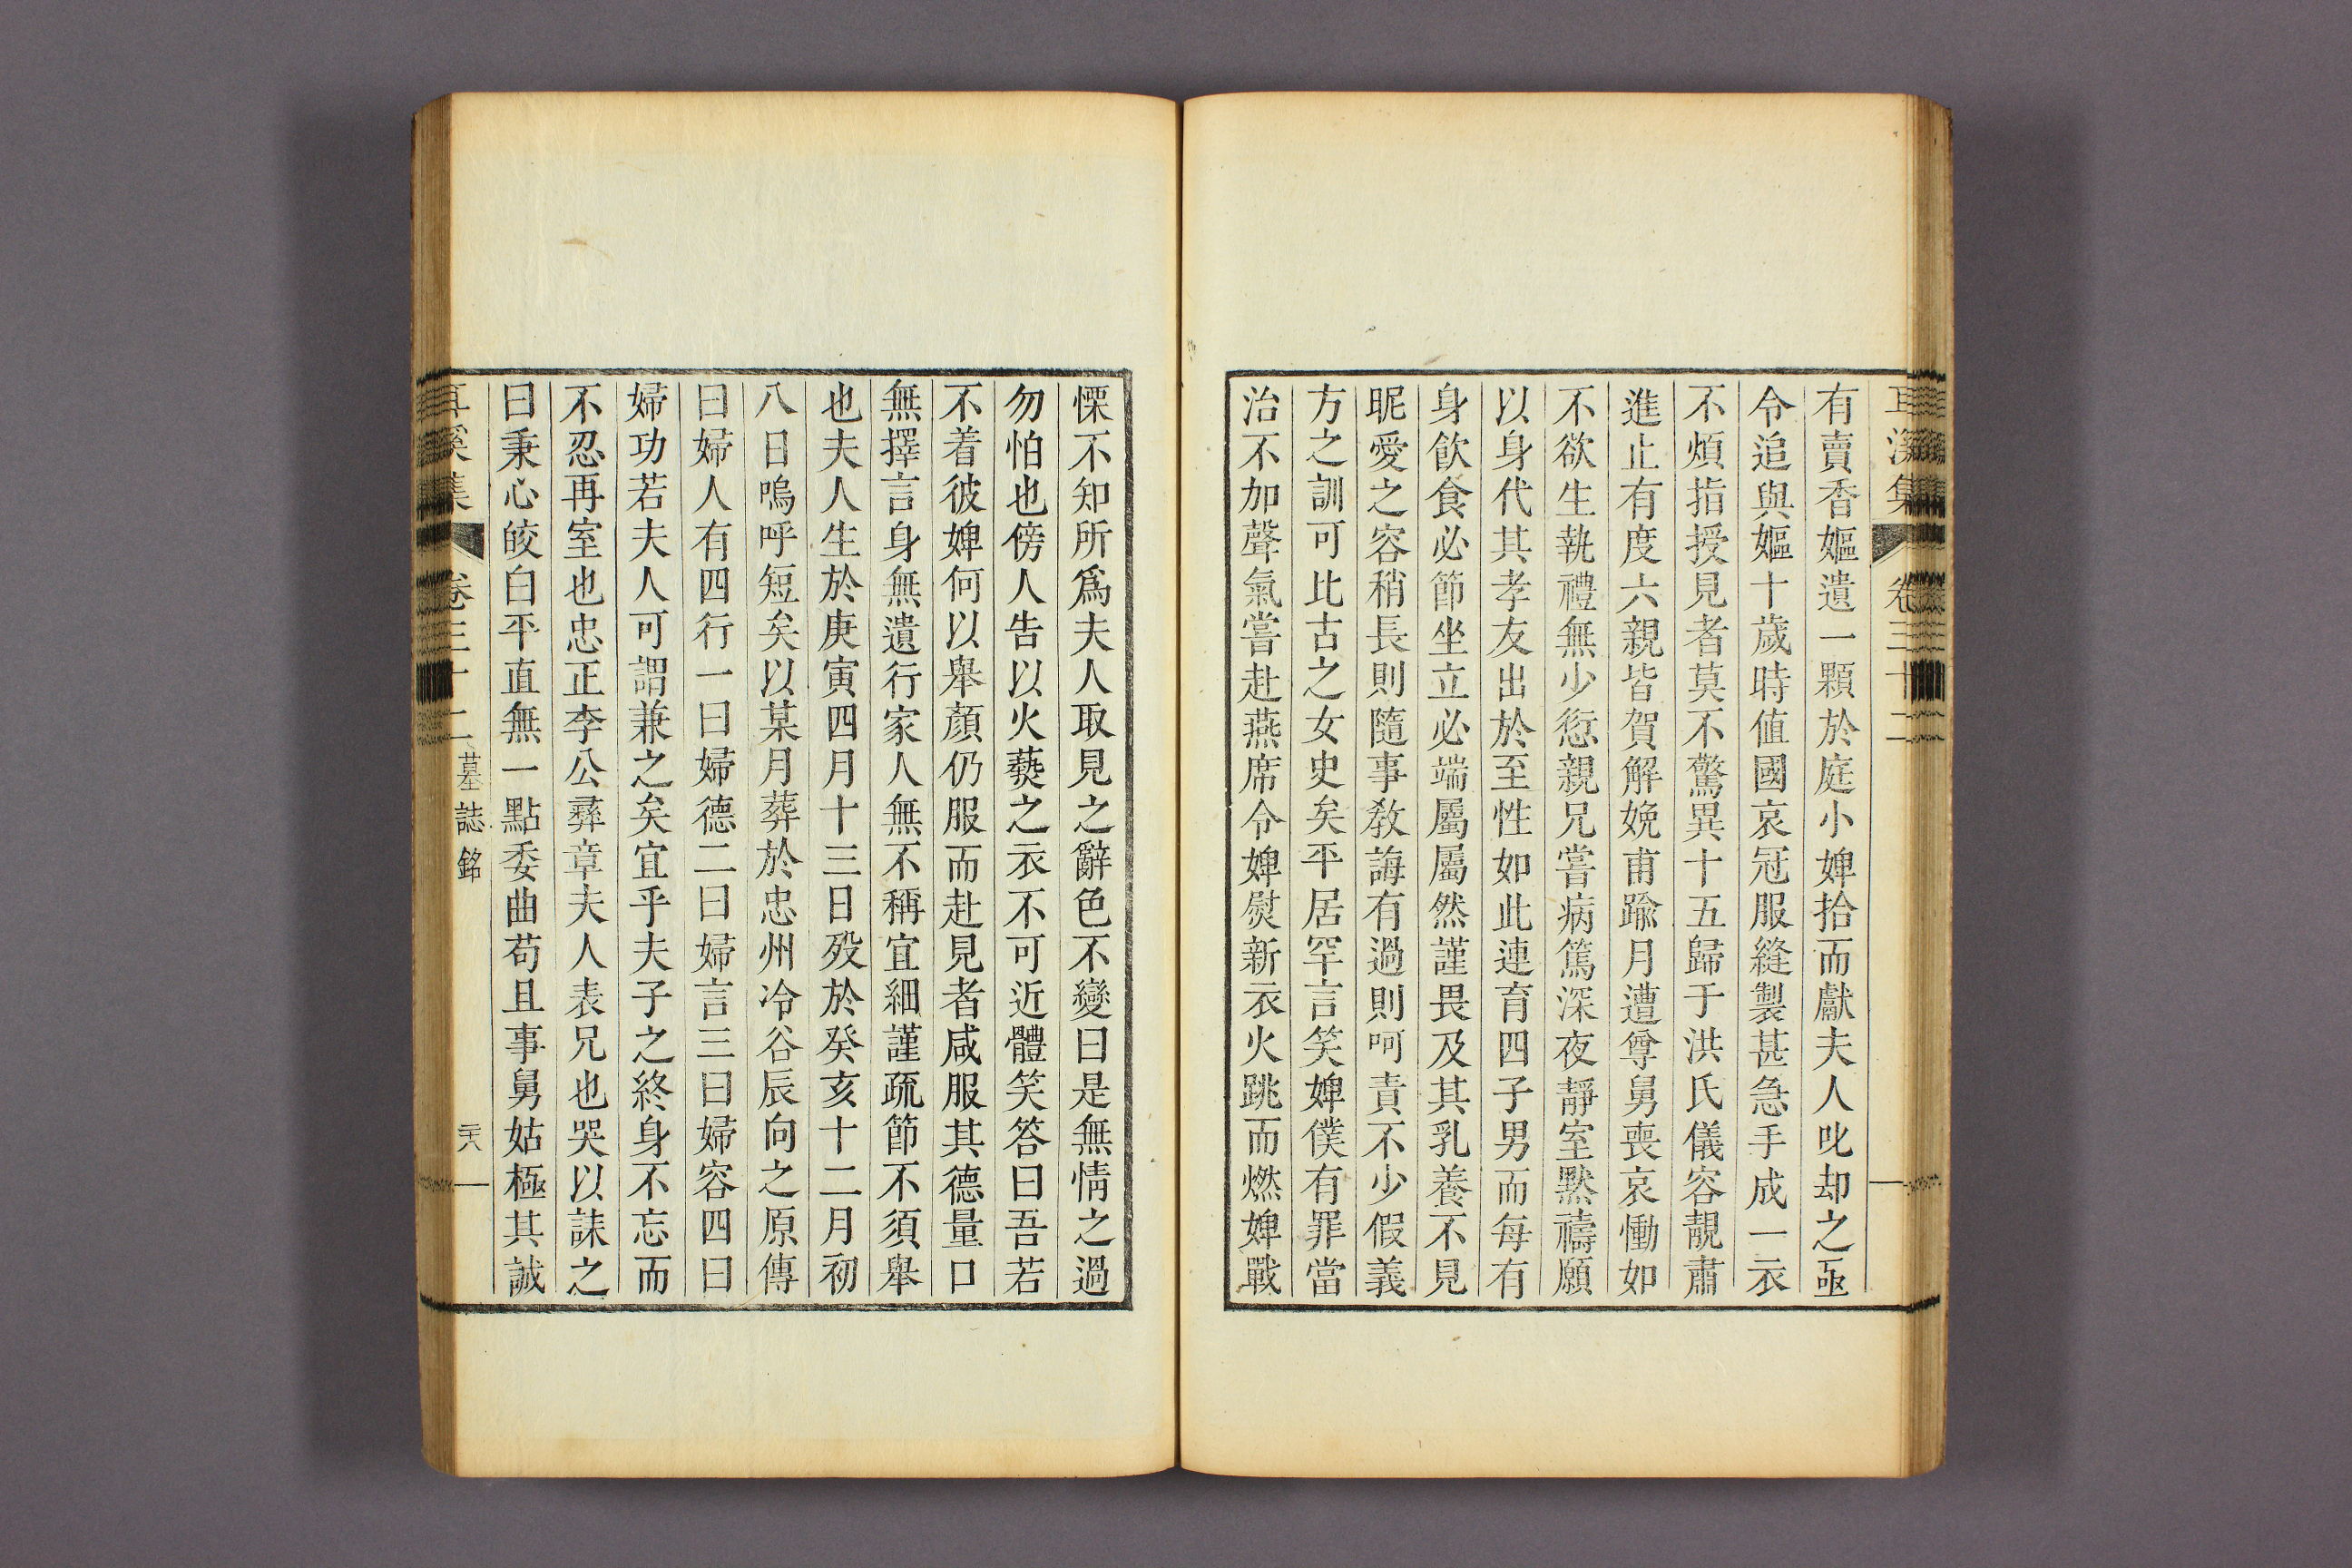 耳溪集 卷三十二
有賣香嫗遺一顆於庭小婢拾而獻夫人叱却之亟
令追與嫗十歲時値國哀冠服縫製甚急手成一衣
不煩指授見者莫不驚異十五歸于洪氏儀容靚肅
進止有度六親皆賀解娩甫踰月遭尊舅喪哀慟如
不欲生執禮無少愆親兄嘗病篤深夜靜室黙禱願
以身代其孝友出於至性如此連育四子男而每有
身飮食必節坐立必端屬屬然謹畏及其乳養不見
昵愛之容稍長則隨事敎誨有過則呵責不少假義
方之訓可比古之女史矣平居罕言笑婢僕有罪當
治不加聲氣嘗赴燕席令婢熨新衣火跳而燃婢戰
慄不知所爲夫人取見之辭色不變曰是無情之過
勿怕也傍人告以火爇之衣不可近體笑答曰吾若
不着彼婢何以舉顏仍服而赴見者咸服其德量口
無擇言身無遺行家人無不稱宜細謹疏節不須舉
也夫人生於庚寅四月十三日歿於癸亥十二月初
八日嗚呼短矣以某月葬於忠州冷谷辰向之原傳
曰婦人有四行一曰婦德二曰婦言三曰婦容四曰
婦功若夫人可謂兼之矣宜乎夫子之終身不忘而
不忍再室也忠正李公彝章夫人表兄也哭以誄之
曰秉心皎白平直無一點委曲苟且事舅姑極其誠
耳溪集 卷三十二 墓誌銘 二十八